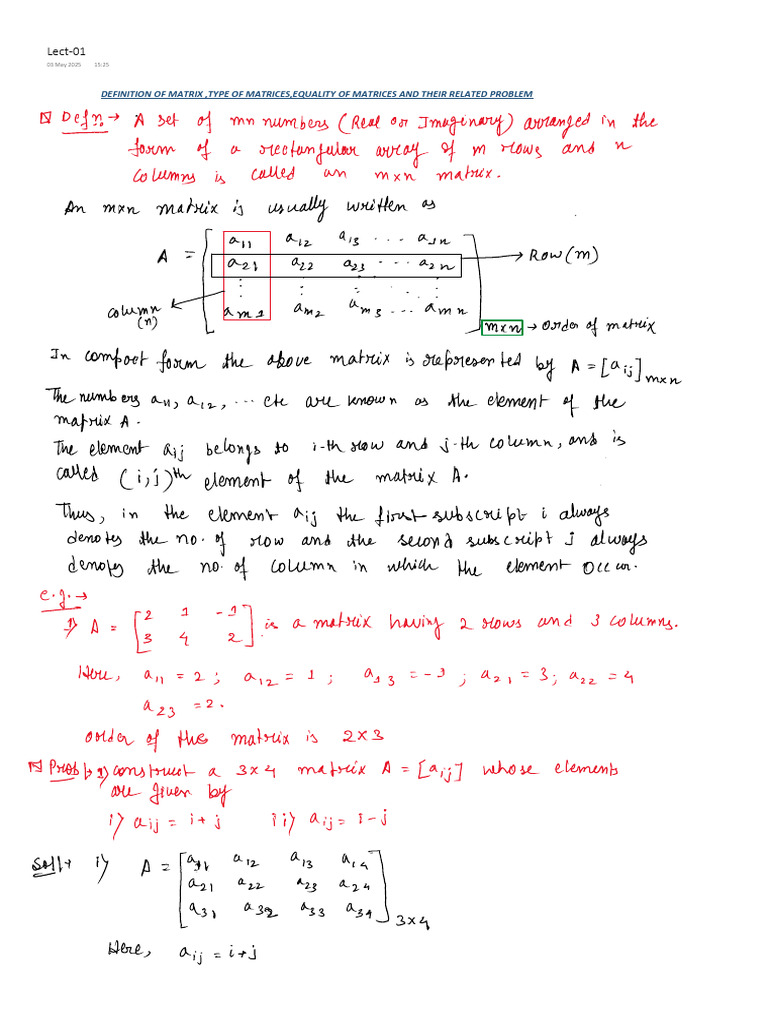 Lect-01
03 May 2025 15:25
DEFINITION OF MATRIX ,TYPE OF MATRICES,EQUALITY OF MATRICES AND THEIR RELATED PROBLEM
Defn. → A set of mn numbers (Real or Imaginary) arranged in the
form of a rectangular array of m rows and n
columns is called an m×n matrix.
An m×n matrix is usually written as
A = [ a11 a12 a13 ... a1n
a21 a22 a23 ... a2n → Row(m)
⋮ ⋮ ⋮ ⋮
column (n) am1 am2 am3 ... amn ] m×n → order of matrix
In compact form the above matrix is represented by A = [aij]m×n
The numbers a11, a12, ... etc are known as the element of the
matrix A.
The element aij belongs to i-th row and j-th column, and is
called (i,j)th element of the matrix A.
Thus, in the element aij the first subscript i always
denotes the no. of row and the second subscript j always
denotes the no. of column in which the element occur.
e.g. →
1) A = [ 2 1 -1
3 4 2 ] is a matrix having 2 rows and 3 columns.
Here, a11 = 2 ; a12 = 1 ; a13 = -1 ; a21 = 3; a22 = 4
a23 = 2.
order of the matrix is 2×3
Prob → 1) construct a 3×4 matrix A = [aij] whose elements
are given by
i) aij = i+j ii) aij = i-j
Sol → i) A = [ a11 a12 a13 a14
a21 a22 a23 a24
a31 a32 a33 a34 ] 3×4
Here, aij = i+j